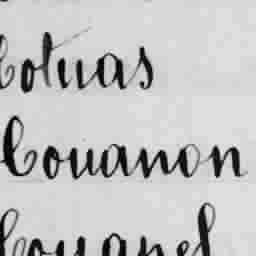 Cotuas
Couanon
Couapel